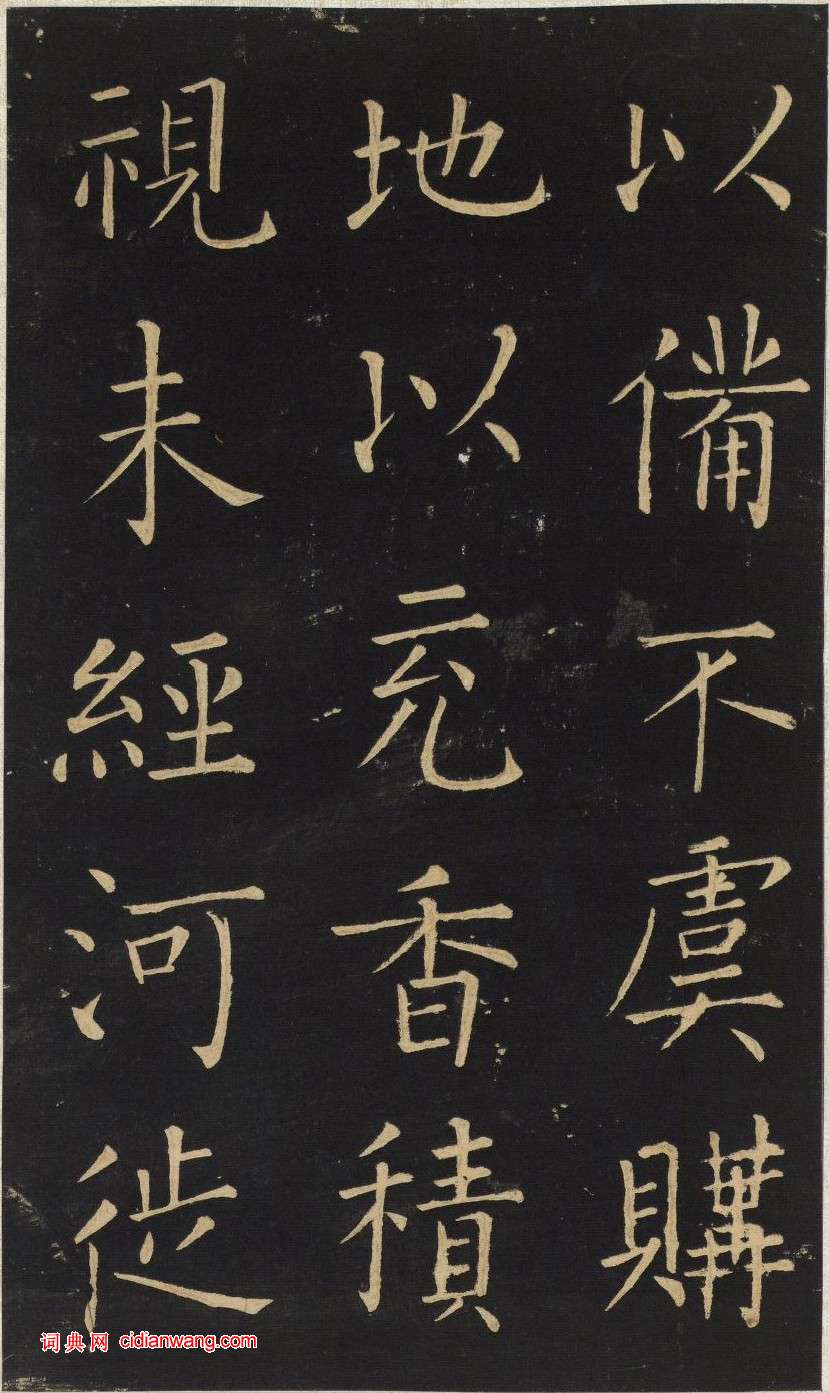 以備不虞購
地以充香積
視未經河徙
词典网 cidianwang.com